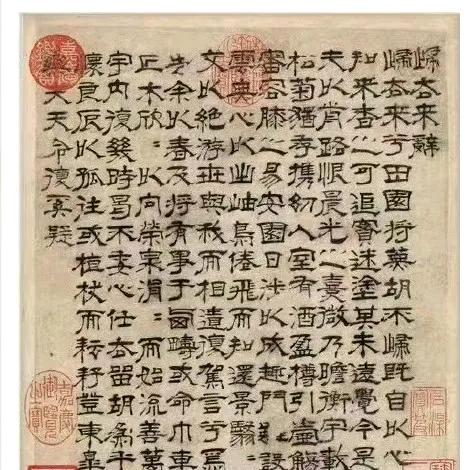 歸去來辭
歸去來兮田園將蕪胡不歸既自以心
知來者之可追實迷塗其未遠覺今是
夫以前路恨晨光之熹微乃瞻衡宇載
松菊猶存攜幼入室有酒盈樽引壺觴
審容膝之易安園日涉以成趣門雖設
雲無心以出岫鳥倦飛而知還景翳
交以絕游世與我而相遺復駕言兮焉
告余以春及將有事于西疇或命巾車
丘木欣欣以向榮泉涓涓而始流善萬
宇內復幾時曷不委心任去留胡為乎
懷良辰以孤往或植杖而耘耔登東皋
樂夫天命復奚疑